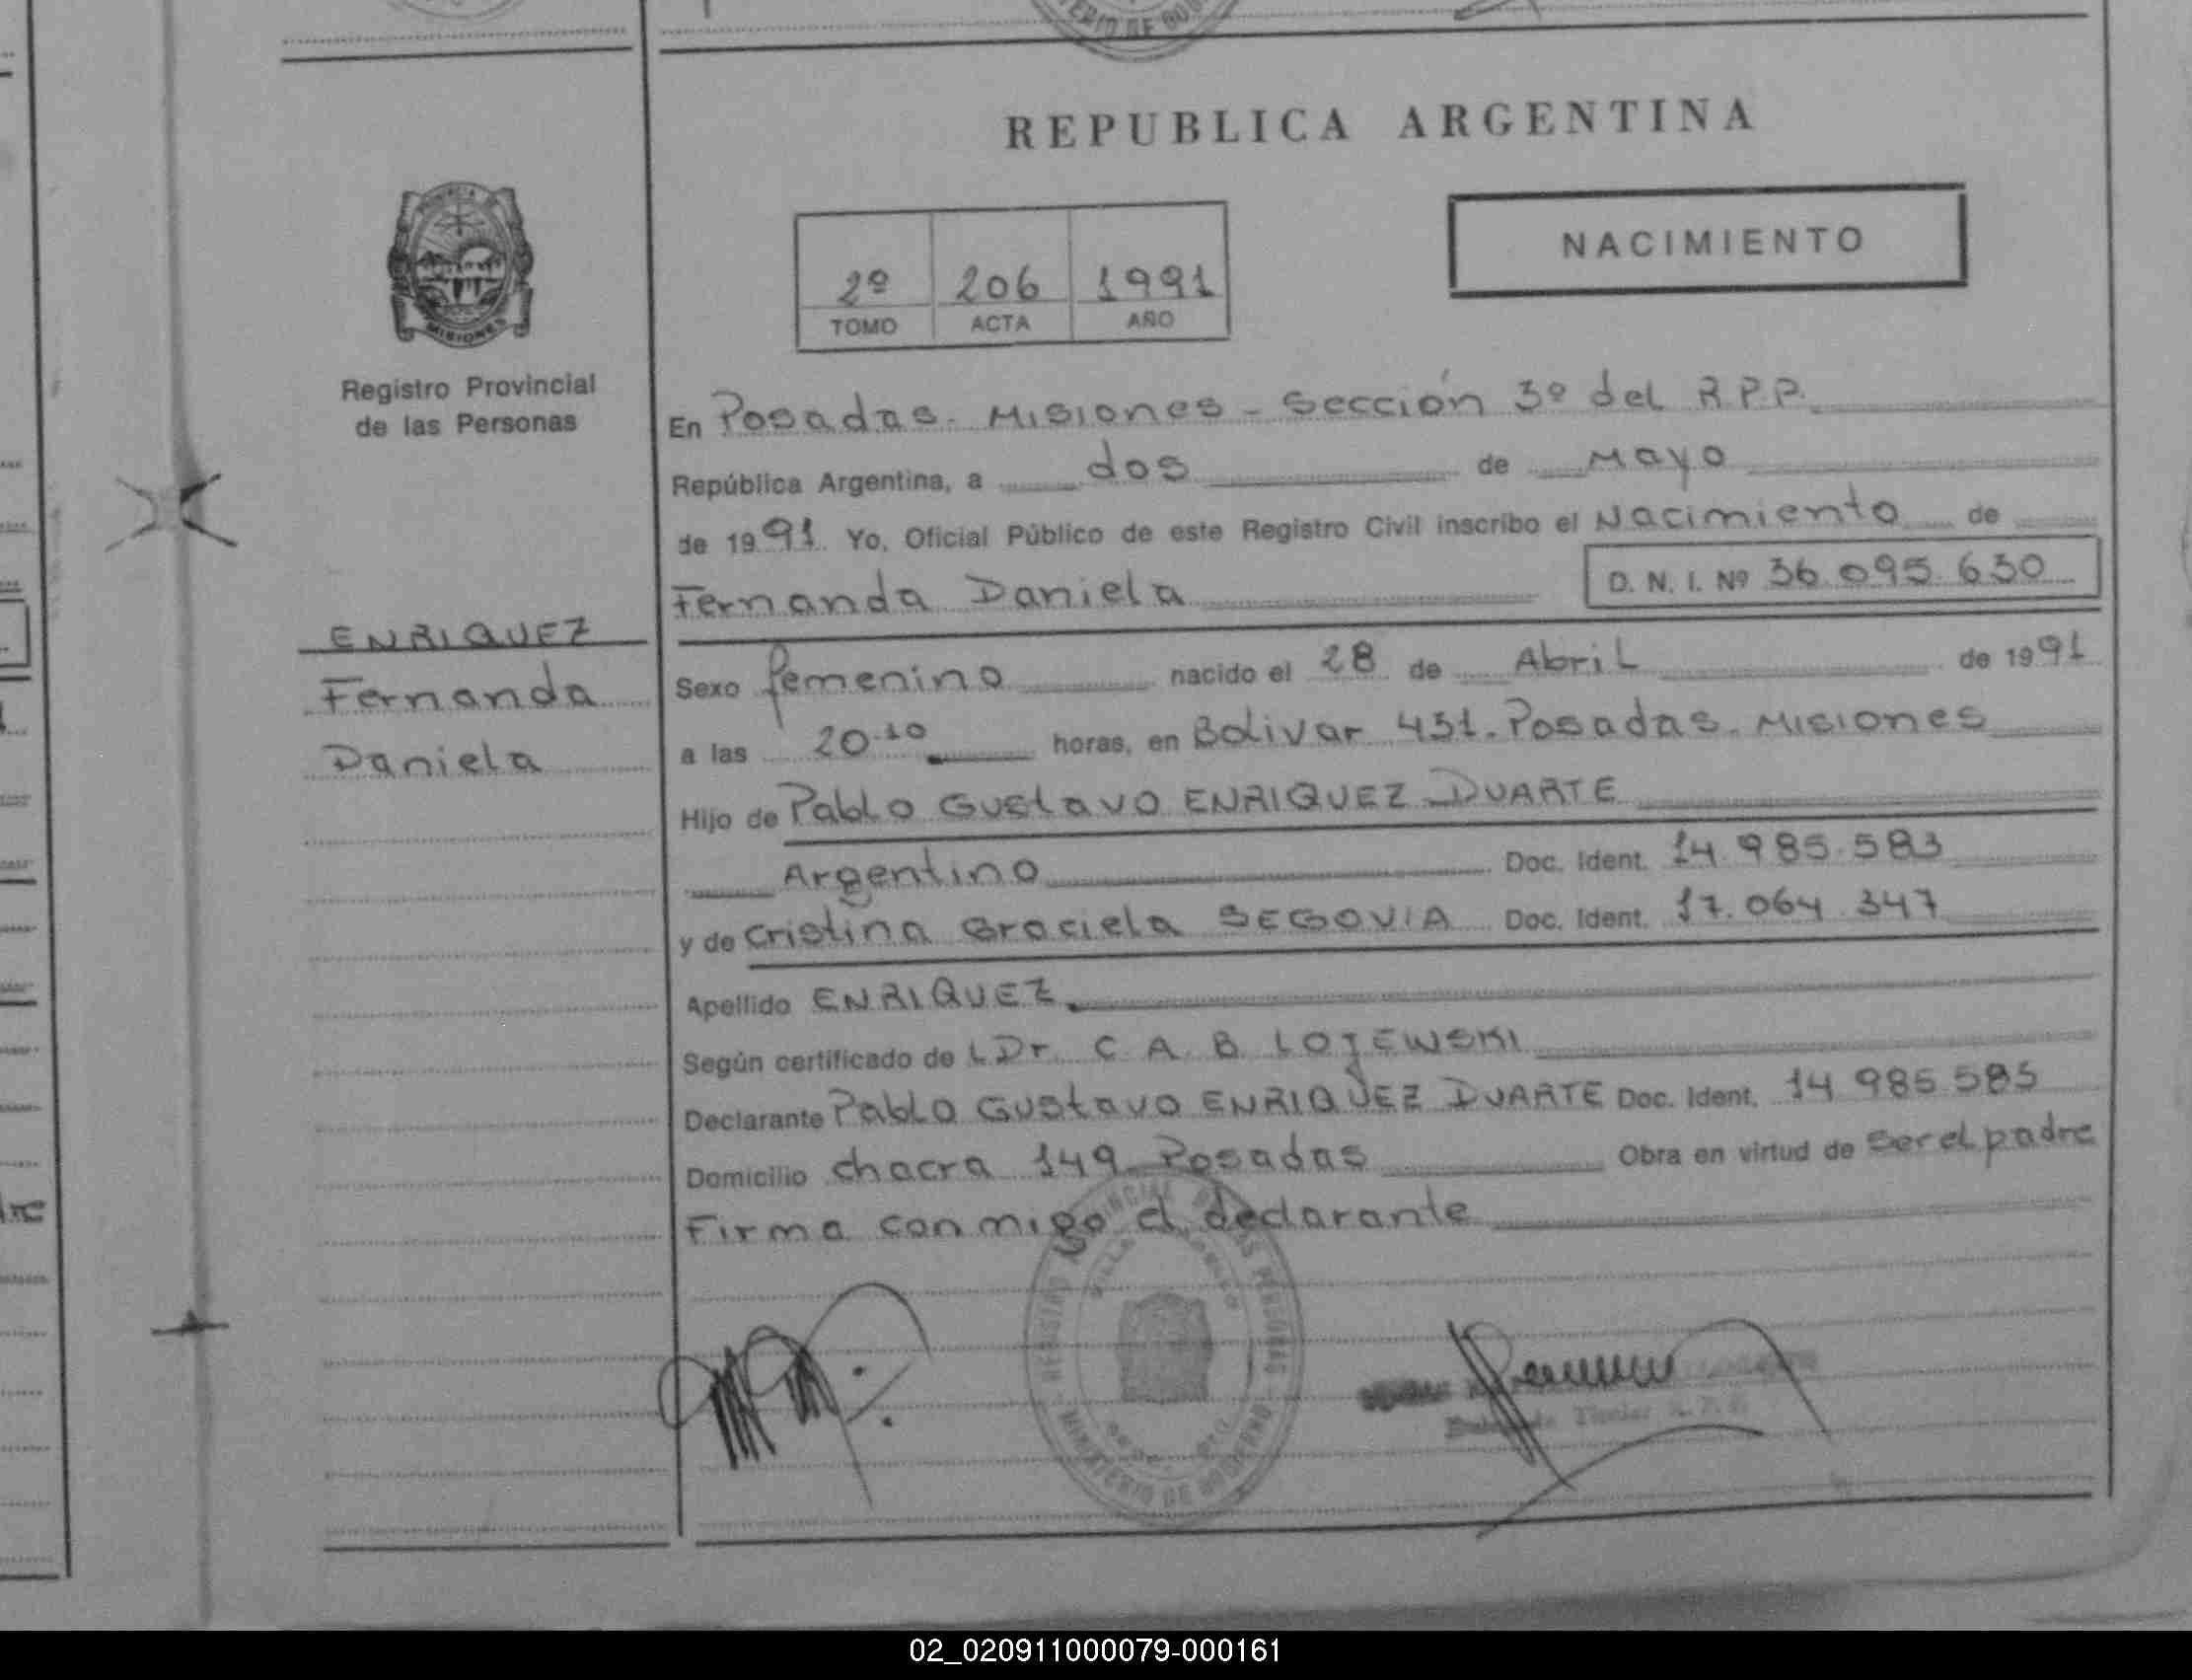 REPUBLICA ARGENTINA
NACIMIENTO
2º 206 1991
TOMO ACTA AÑO
MISIONES
Registro Provincial
de las Personas
ENRIQUEZ
Fernanda
Daniela
En Posadas. Misiones - Sección 3º del R.P.P.
República Argentina, a dos de Mayo
de 1991. Yo, Oficial Público de este Registro Civil inscribo el Nacimiento de
Fernanda Daniela D. N. I. Nº 36.095.630
Sexo femenino nacido el 28 de Abril de 1991
a las 20.10 horas, en Bolivar 451. Posadas. Misiones
Hijo de Pablo Gustavo ENRIQUEZ DUARTE
Argentino Doc. Ident. 14.985.583
y de Cristina Graciela SEGOVIA Doc. Ident. 17.064.347
Apellido ENRIQUEZ
Según certificado de L Dr. C. A. B. LOJEWSKI
Declarante Pablo Gustavo ENRIQUEZ DUARTE Doc. Ident. 14 985.585
Domicilio chacra 149. Posadas Obra en virtud de ser el padre
Firma conmigo el declarante
MINISTERIO DE GOBIERNO
02_020911000079-000161